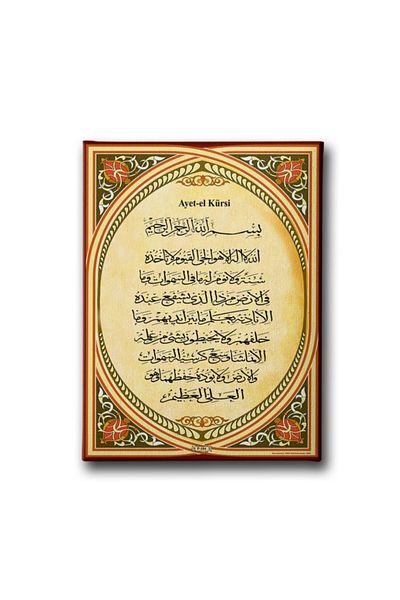 Ayet-el Kürsi
بسم الله الرحمن الرحيم
الله لا اله الا هو الحي القيوم لا تأخذه
سنة ولا نوم له ما في السموات وما
في الارض من ذا الذي يشفع عنده
الا باذنه يعلم ما بين ايديهم وما
خلفهم ولا يحيطون بشئ من علمه
الا بما شاء وسع كرسيه السموات
والارض ولا يؤده حفظهما وهو
العلي العظيم